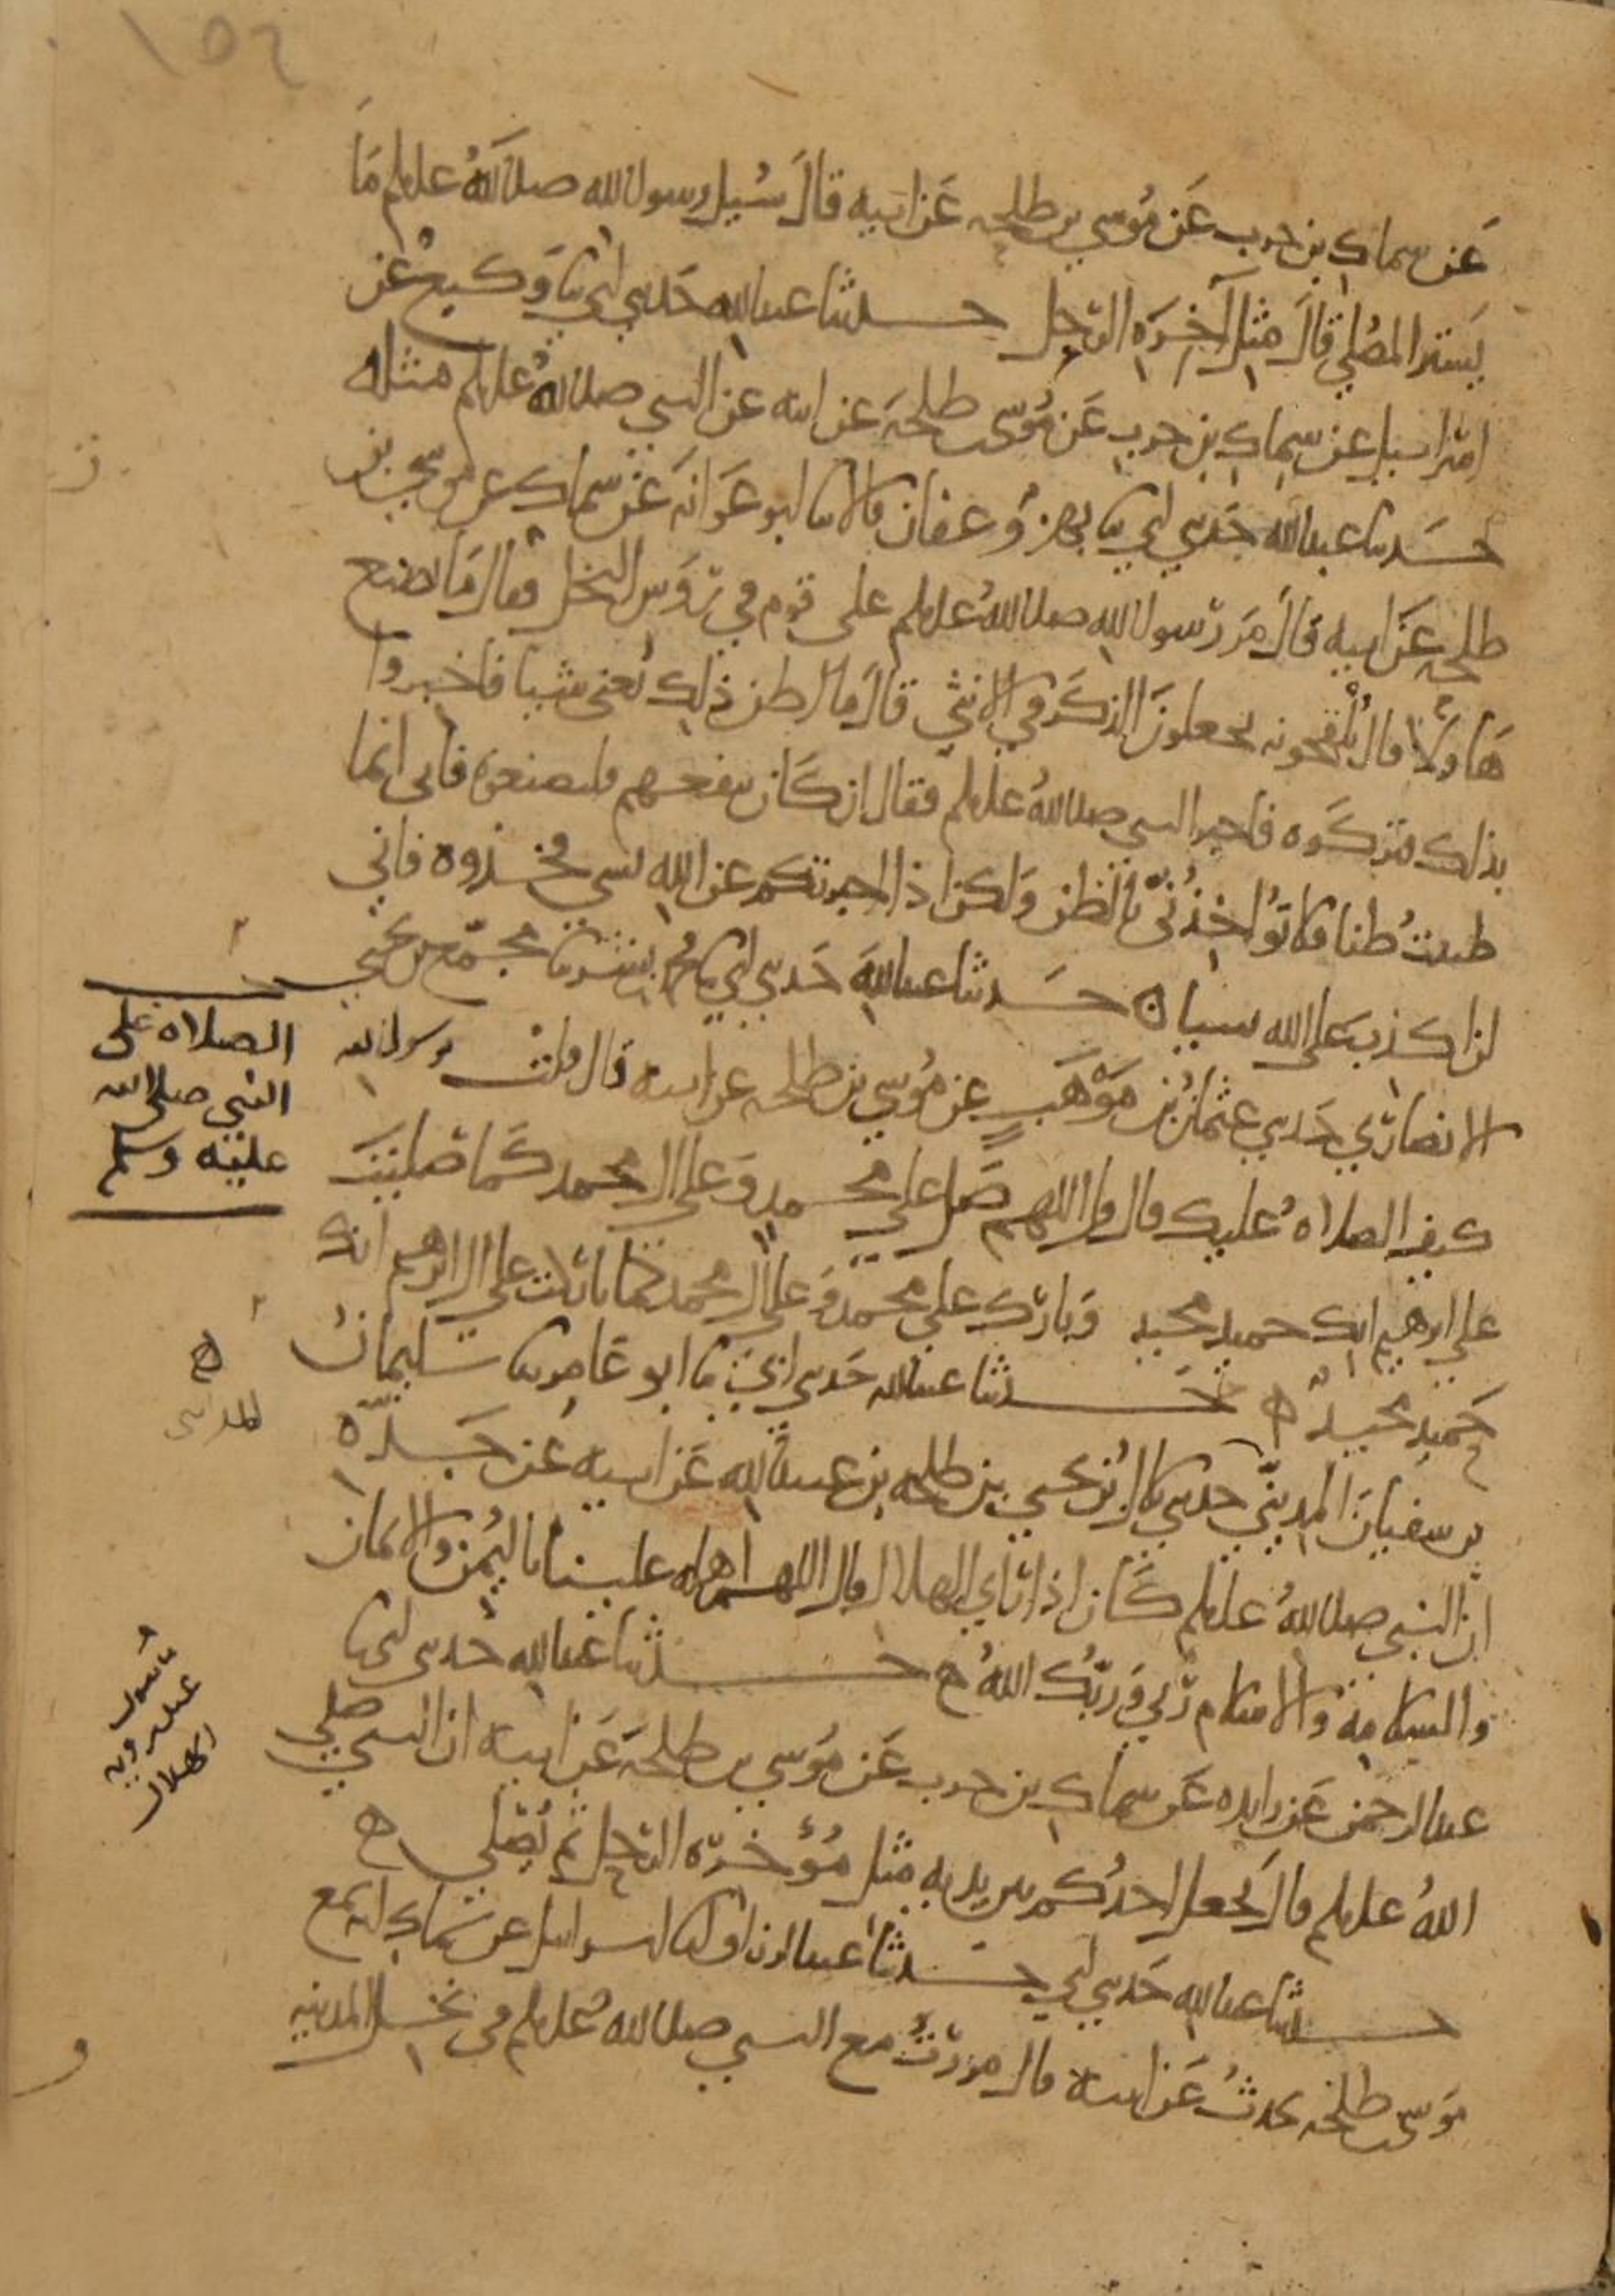 ١٥٤
عَن سماك بن حرب عَن مُوسي بن طلحه عَن ابيه قالَ سُيل رسول الله صلى اللهُ عليه وسلم مَا
يَستر المصُلي قالَ مثل آخِرَه الرّحل حدثنا عبد الله حَدثني ابي ثنا وَكيع عَن
اسراييل عن سِماك بن حرب عَن مُوسى بن طلحَة عن ابيه عن النبي صلى اللهُ عليه وسلم مثله
حَدثنا عبد الله حَدثني ابي ثنا بهز وَعفان قالا ثنا ابو عَوَانَه عَن سماك عن موسي بن
طلحه عَن ابيه قالَ مَر رّسول الله صلى اللهُ عليه وسلم على قوم في رّؤس النخل فقال مَا يصنع
هَاؤلَاء قال يُلقحونه يجعلونَ الذكَر في الانثي قالَ ما اظن ذلك يُغني شيا فاخبروا
بذلك فتركوه فاخبر النبي صلى اللهُ عليه وسلم فقال ان كَان ينفعهم فليصنعوه فاني انما
ظننتُ ظنا فلا تؤاخذُنّي بالظن وَلكن اذا اخبرتكم عن الله بشي فخذوه فاني
لن اكذب على الله شيا ه حَدثنا عبد اللهَ حَدثني ابي ثنا محمد بن بشر ثنا مجمّع بن يحيي
الانصارّي حَدثني عثمانُ بن مَوْهَبٍ عن مُوسي بن طلحه عن ابيه قال قلتْ يرسول الله
كيف الصلاهُ عليك قال قل اللهم صَل على محمدٍ وَعلى ال محمد كمَا صَليتَ
على ابرهيم انك حميد مجيد وَبارّك على محمد وَعلى ال محمد كما بارّكت على ال ابرهيم انك
حَميد مجيدٌ ه حَدثنا عبد الله حَدثني ابي ثنا ابو عَامر ثنا سليمانُ
بن سفيانَ المدينّي حدثني بلالُ بن يحيي بن طلحه بن عبيد الله عَن ابيه عَن جَدّه
ان النبي صلى اللهُ عليه وسلم كَان اذا رّاي الهلال قال اللهم اهله علينا باليُمن والايمَان
والسلامة وَالاسلام رّبي وَرّبّك اللهُ ه حدثنا عبد الله حَدثني ابي ثنا
عبد الرحمن عَن زايده عَن سماك بن حرب عَن مُوسي بن طلحَة عَن ابيه ان النبي صلى
اللهُ عليه وسلم قالَ يجعل احدُكم بين يديه مثل مُؤخرّه الرّحل ثم يُصَلي ه
حدثنا عبد الله حَدثني ابي حَدثنا عبد الرزاق انا اسراييل عن سماك انه سمع
مَوسى بن طلحَه يحدثُ عَن ابيه قال مررّتُ مع النبي صلى اللهُ عليه وسلم في نخل المدينه
الصلاه على
النبي صلى الله
عليه وسلم
المديني
ما يقول
عند روية
الهلال